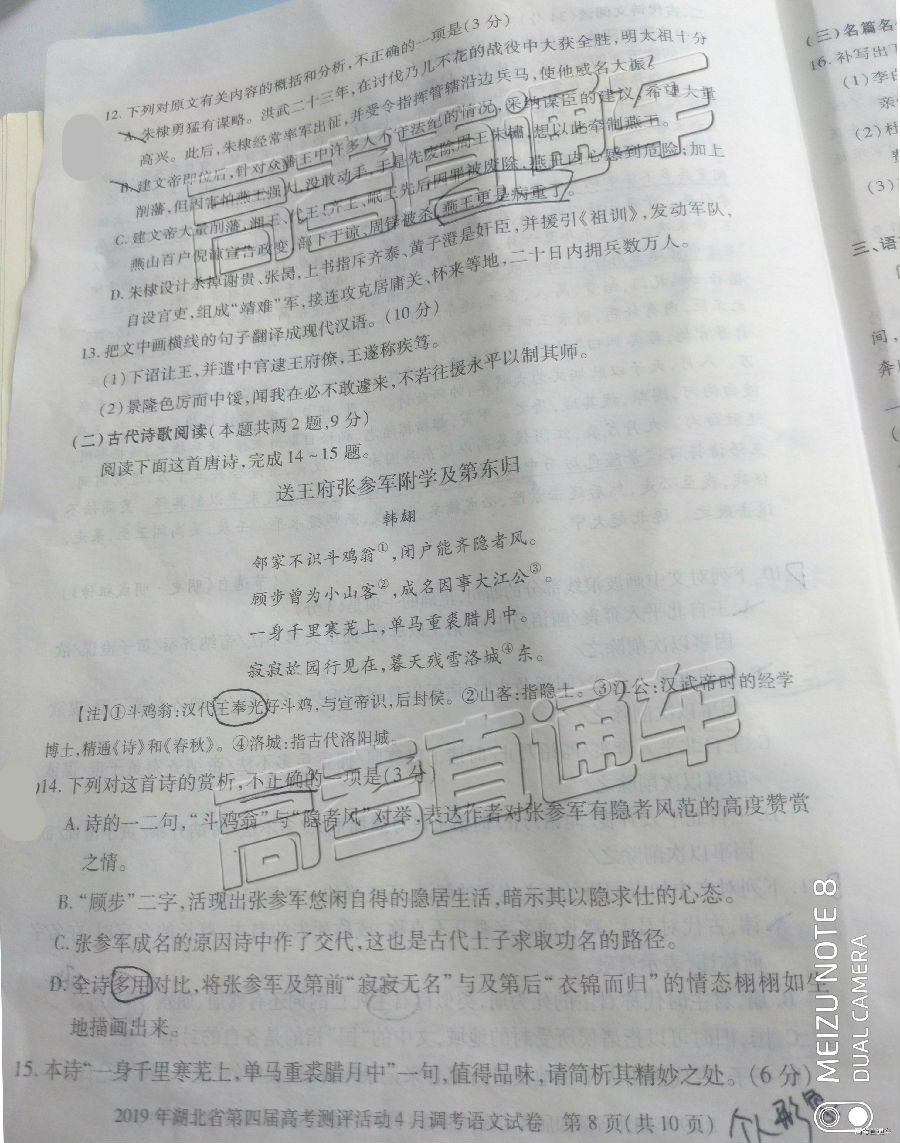 12. 下列对原文有关内容的概括和分析,不正确的一项是(3 分)
A. 朱棣勇猛有谋略。洪武二十三年,在讨伐乃儿不花的战役中大获全胜,明太祖十分
高兴。此后,朱棣经常率军出征,并受令指挥管辖沿边兵马,使他威名大振。
B. 建文帝即位后,针对众藩王中许多人不守法纪的情况,采纳谋臣的建议,希望大量
削藩,但因害怕燕王强大,没敢动手,于是先废除周王朱橚,想以此牵制燕王。
C. 建文帝大量削藩,湘王、代王、齐王、岷王先后因罪被废除,燕王内心感到危险;加上
燕山百户倪谅宣告政变,部下于谅、周铎被杀,燕王更是病重了。
D. 朱棣设计杀掉谢贵、张昺,上书指斥齐泰、黄子澄是奸臣,并援引《祖训》,发动军队,
自设官吏,组成“靖难”军,接连攻克居庸关、怀来等地,二十日内拥兵数万人。
13. 把文中画横线的句子翻译成现代汉语。(10 分)
(1)下诏让王,并遣中官逮王府僚,王遂称疾笃。
(2)景隆色厉而中馁,闻我在必不敢遽来,不若往援永平以制其师。
(二)古代诗歌阅读(本题共两 2 题,9 分)
阅读下面这首唐诗,完成 14~15 题。
送王府张参军附学及第东归
韩翃
邻家不识斗鸡翁①,闭户能齐隐者风。
顾步曾为小山客②,成名因事大江公③。
一身千里寒芜上,单马重裘腊月中。
寂寂故园行见在,暮天残雪洛城④东。
【注】①斗鸡翁:汉代王奉光好斗鸡,与宣帝识,后封侯。②山客:指隐士。③江公:汉武帝时的经学
博士,精通《诗》和《春秋》。④洛城:指古代洛阳城。
14. 下列对这首诗的赏析,不正确的一项是(3 分)
A. 诗的一二句,“斗鸡翁”与“隐者风”对举,表达作者对张参军有隐者风范的高度赞赏
之情。
B. “顾步”二字,活现出张参军悠闲自得的隐居生活,暗示其以隐求仕的心态。
C. 张参军成名的原因诗中作了交代,这也是古代士子求取功名的路径。
D. 全诗多用对比,将张参军及第前“寂寂无名”与及第后“衣锦而归”的情态栩栩如生
地描画出来。
15. 本诗“一身千里寒芜上,单马重裘腊月中”一句,值得品味,请简析其精妙之处。(6 分)
2019 年湖北省第四届高考测评活动 4 月调考语文试卷 第 8 页(共 10 页)
个人形
(三)名篇名
16. 补写出下
(1)李白
(2)杜
(3)
三、语
间,
奔
高考直通车
高考直通车
MEIZU NOTE 8
DUAL CAMERA